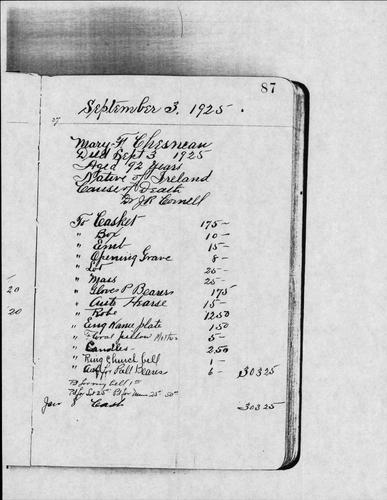 87
September 3, 1925.
27
Mary F Chesneau
Died Sept 3 1925
Aged 92 Years
Native of Ireland
Cause of Death
Dr J R Cornell
To Casket 175 -
" Box 10 -
" Emb 15 -
" Opening Grave 8 -
" Lot 25 -
" Mass 25 -
" Gloves P Bearers 1 75
20 " Auto Hearse 15 -
20 " Robe 12 50
" Eng Name plate 1 50
" Floral pillow 5 -
" Candles 2 50
" Ring Church bell 1 -
" for Pall Bearers 6 - 303 25
Pd for Lot 25 Pd for Mass 25
Jan Cash 303 25